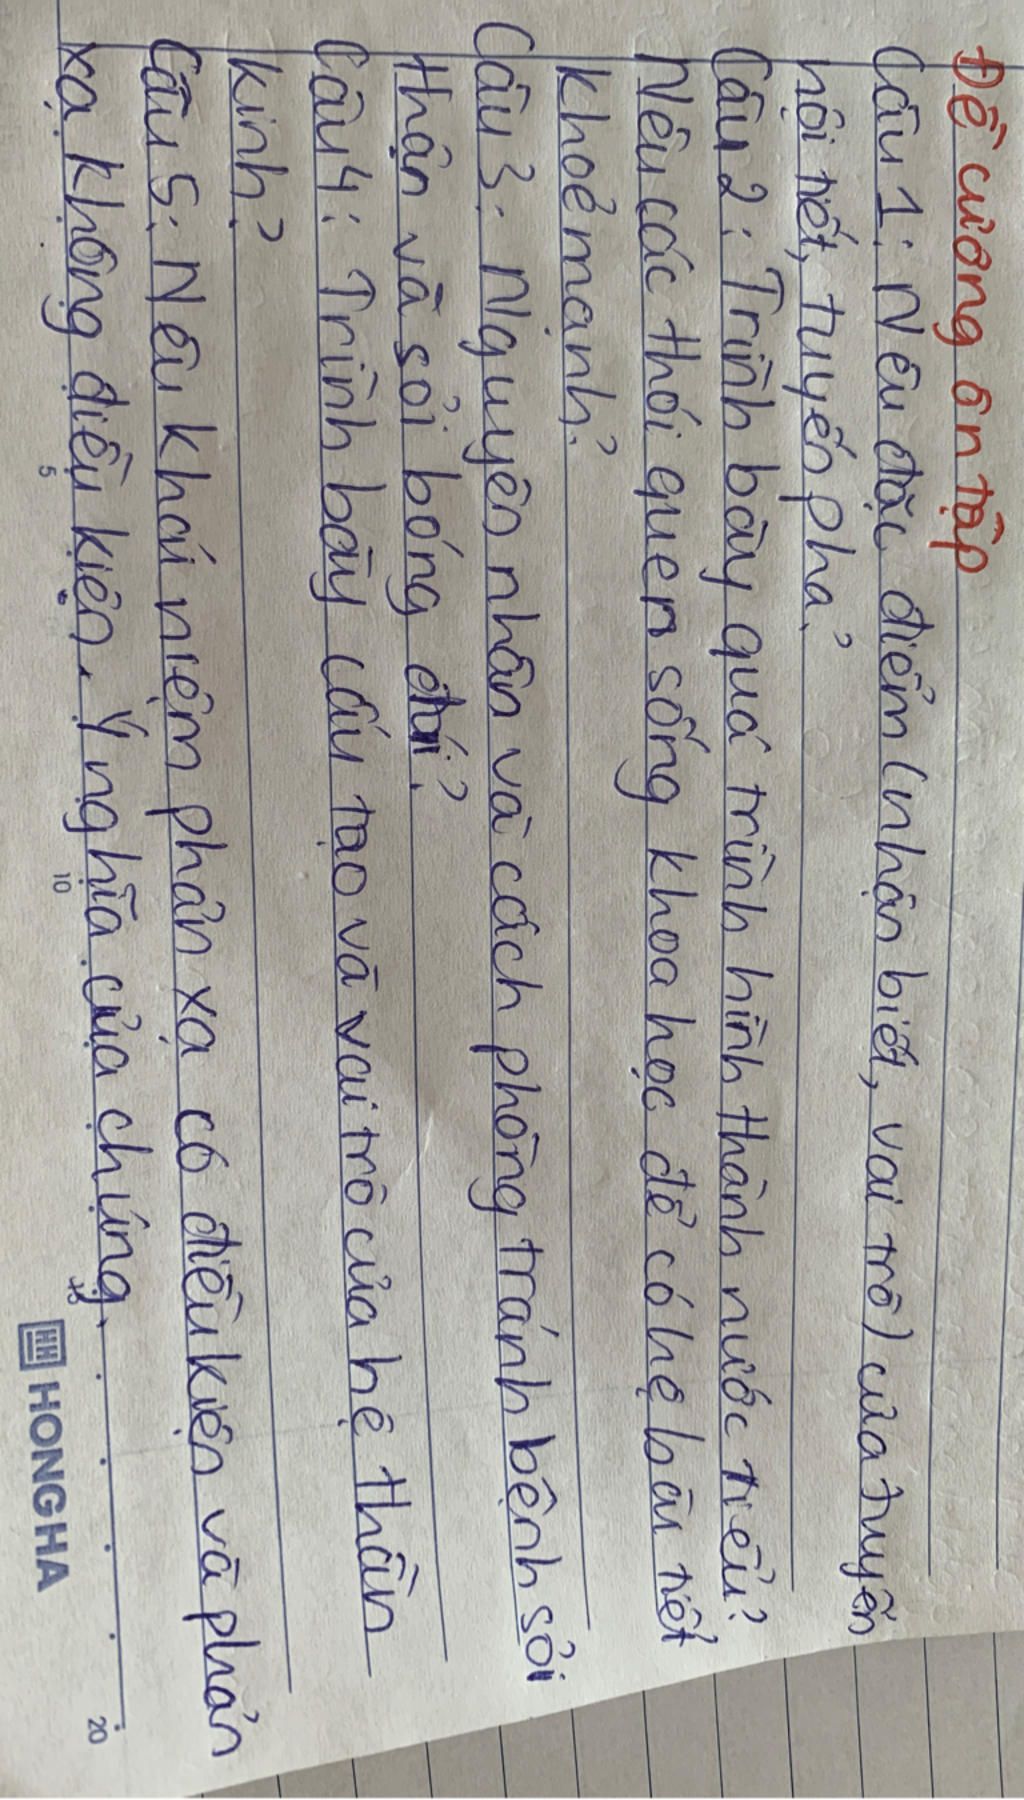 Đề cương ôn tập
Câu 1: Nêu đặc điểm (nhận biết, vai trò) của tuyến
nội tiết, tuyến pha?
Câu 2: Trình bày quá trình hình thành nước tiểu?
Nêu các thói quen sống khoa học để có hệ bài tiết
khoẻ mạnh?
Câu 3: Nguyên nhân và cách phòng tránh bệnh sỏi
thận và sỏi bóng đái?
Câu 4: Trình bày cấu tạo và vai trò của hệ thần
kinh?
Câu 5: Nêu khái niệm phản xạ có điều kiện và phản
xạ không điều kiện. Ý nghĩa của chúng.
5 10 20
HH HONG HA